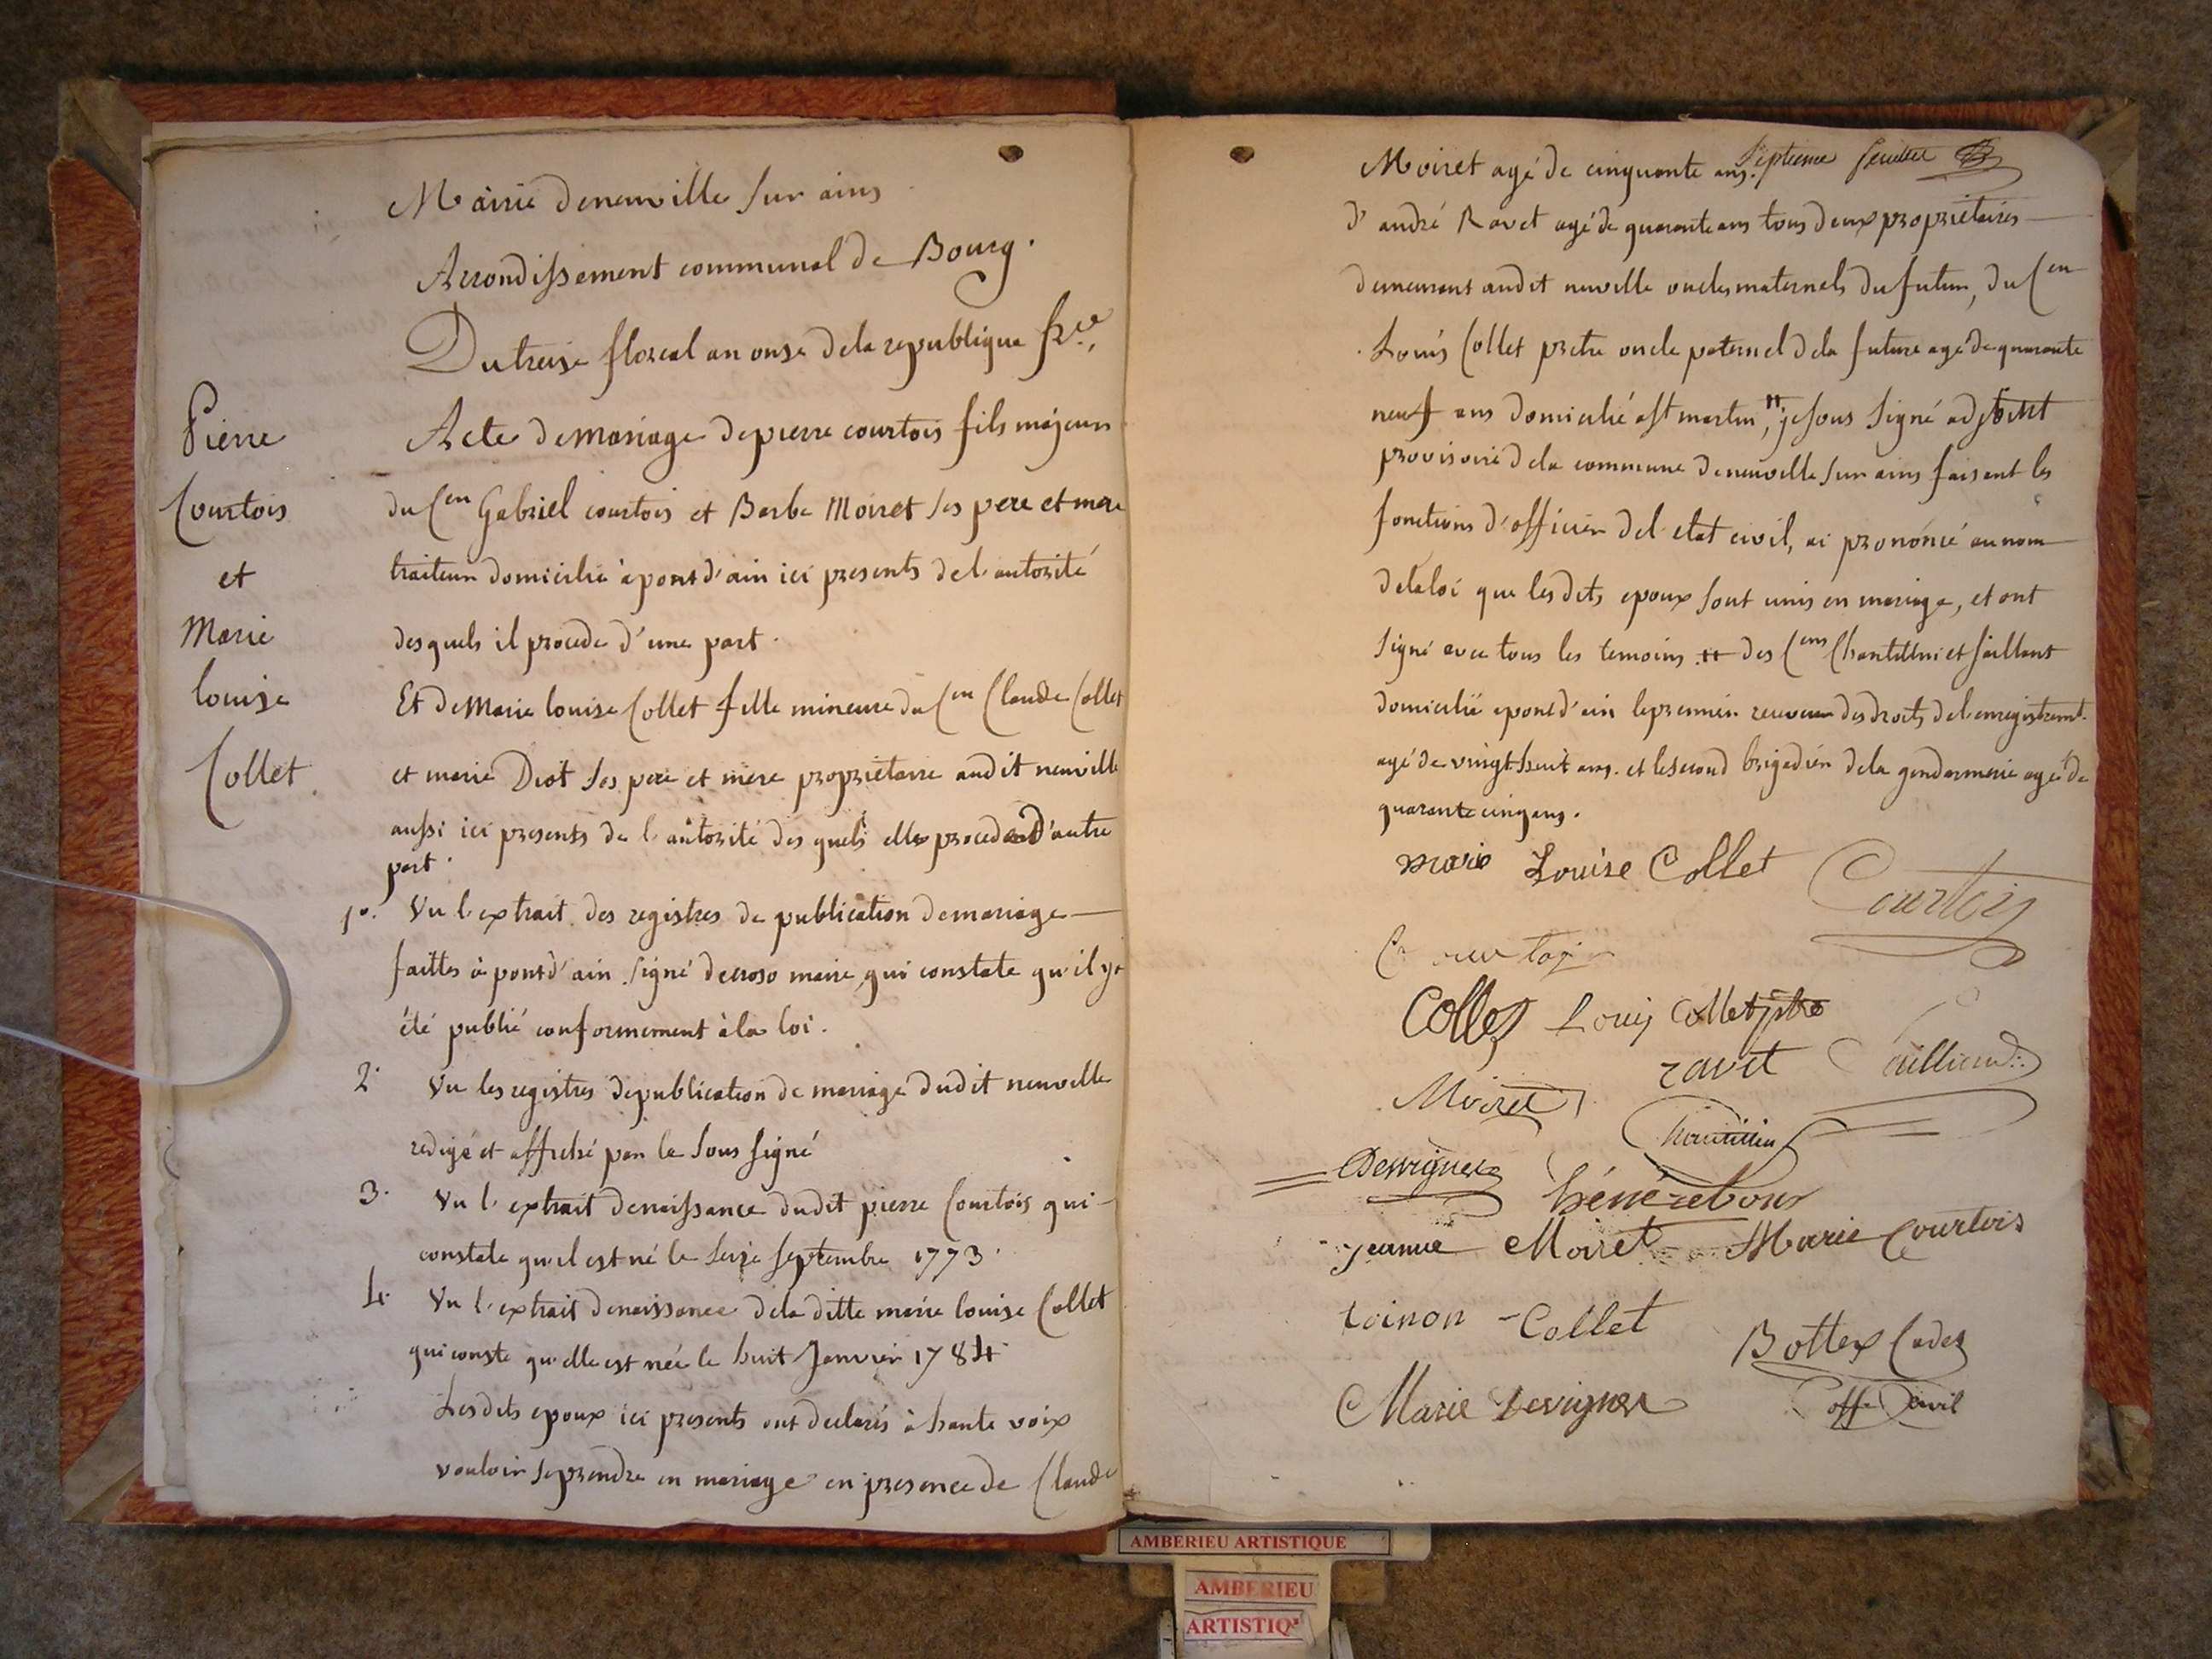 Mairie deneuville sur ains
Arrondissement communal de Bourg.
Du treise floreal an onse dela republique
Pierre
Courtois
et
Marie
louise
Collet
Acte demariage depierre courtois fils majeur
du Cen Gabriel courtois et Barbe Moiret ses pere et mere
traiteur domicilié à pont d'ain ici presents de l'autorité
des quels il procede d'une part.
Et de Marie louise Collet fille mineure du Cen Claude Collet
et marie Diot ses pere et mere propriétaire audit neuville
aussi ici presents de l'autorité des quels elle procede d'autre
part.
1o. Vu l'extrait des registres de publication demariage
faittes à pont d'ain signé decroso maire, qui constate qu'il y a
été publié conformement à la loi.
2. Vu les registres depublication de mariage dudit neuville
redigé et affiché par le sous signé
3. Vu l'extrait denaissance dudit pierre Courtois qui
constate qu'il est né le seise septembre 1773.
4. Vu l'extrait denaissance dela ditte marie louise Collet
qui conste qu'elle est née le huit Janvier 1784.
Lesdits epoux ici presents ont declarés à haute voix
vouloir seprendre en mariage en presence de Claude
septieme feuillet
Moiret agé de cinquante ans.
d'andré Ravet agé de quarante ans tous deux propriétaires
demeurant audit neuville oncles maternels du futur, du Cen
Louis Collet pretre oncle paternel dela future agé de quarante
neuf ans domicilié a st martin, # je sous signé adjoint
provisoire dela commune deneuville sur ains faisant les
fonctions d'officier del'etat civil, ai prononcé au nom
delaloi que lesdits epoux sont unis en mariage, et ont
signé avec tous les temoins. # des Cens Chantillin et saillant
domicilié a pont d'ain le premier receveur des droits del'enregistremt.
agé de vingt huit ans. et le second brigadier dela gendarmerie agé de
quarante cinq ans.
marie Louise Collet Courtois
Collet Louis Collet ptre
ravet
Moiret
Devignes
hénérebour
jeanne Moiret Marie Courtois
toinon - Collet
Bottex Cadet
Marie Devignes
off. civil
AMBERIEU ARTISTIQUE
AMBERIEU
ARTISTIQ